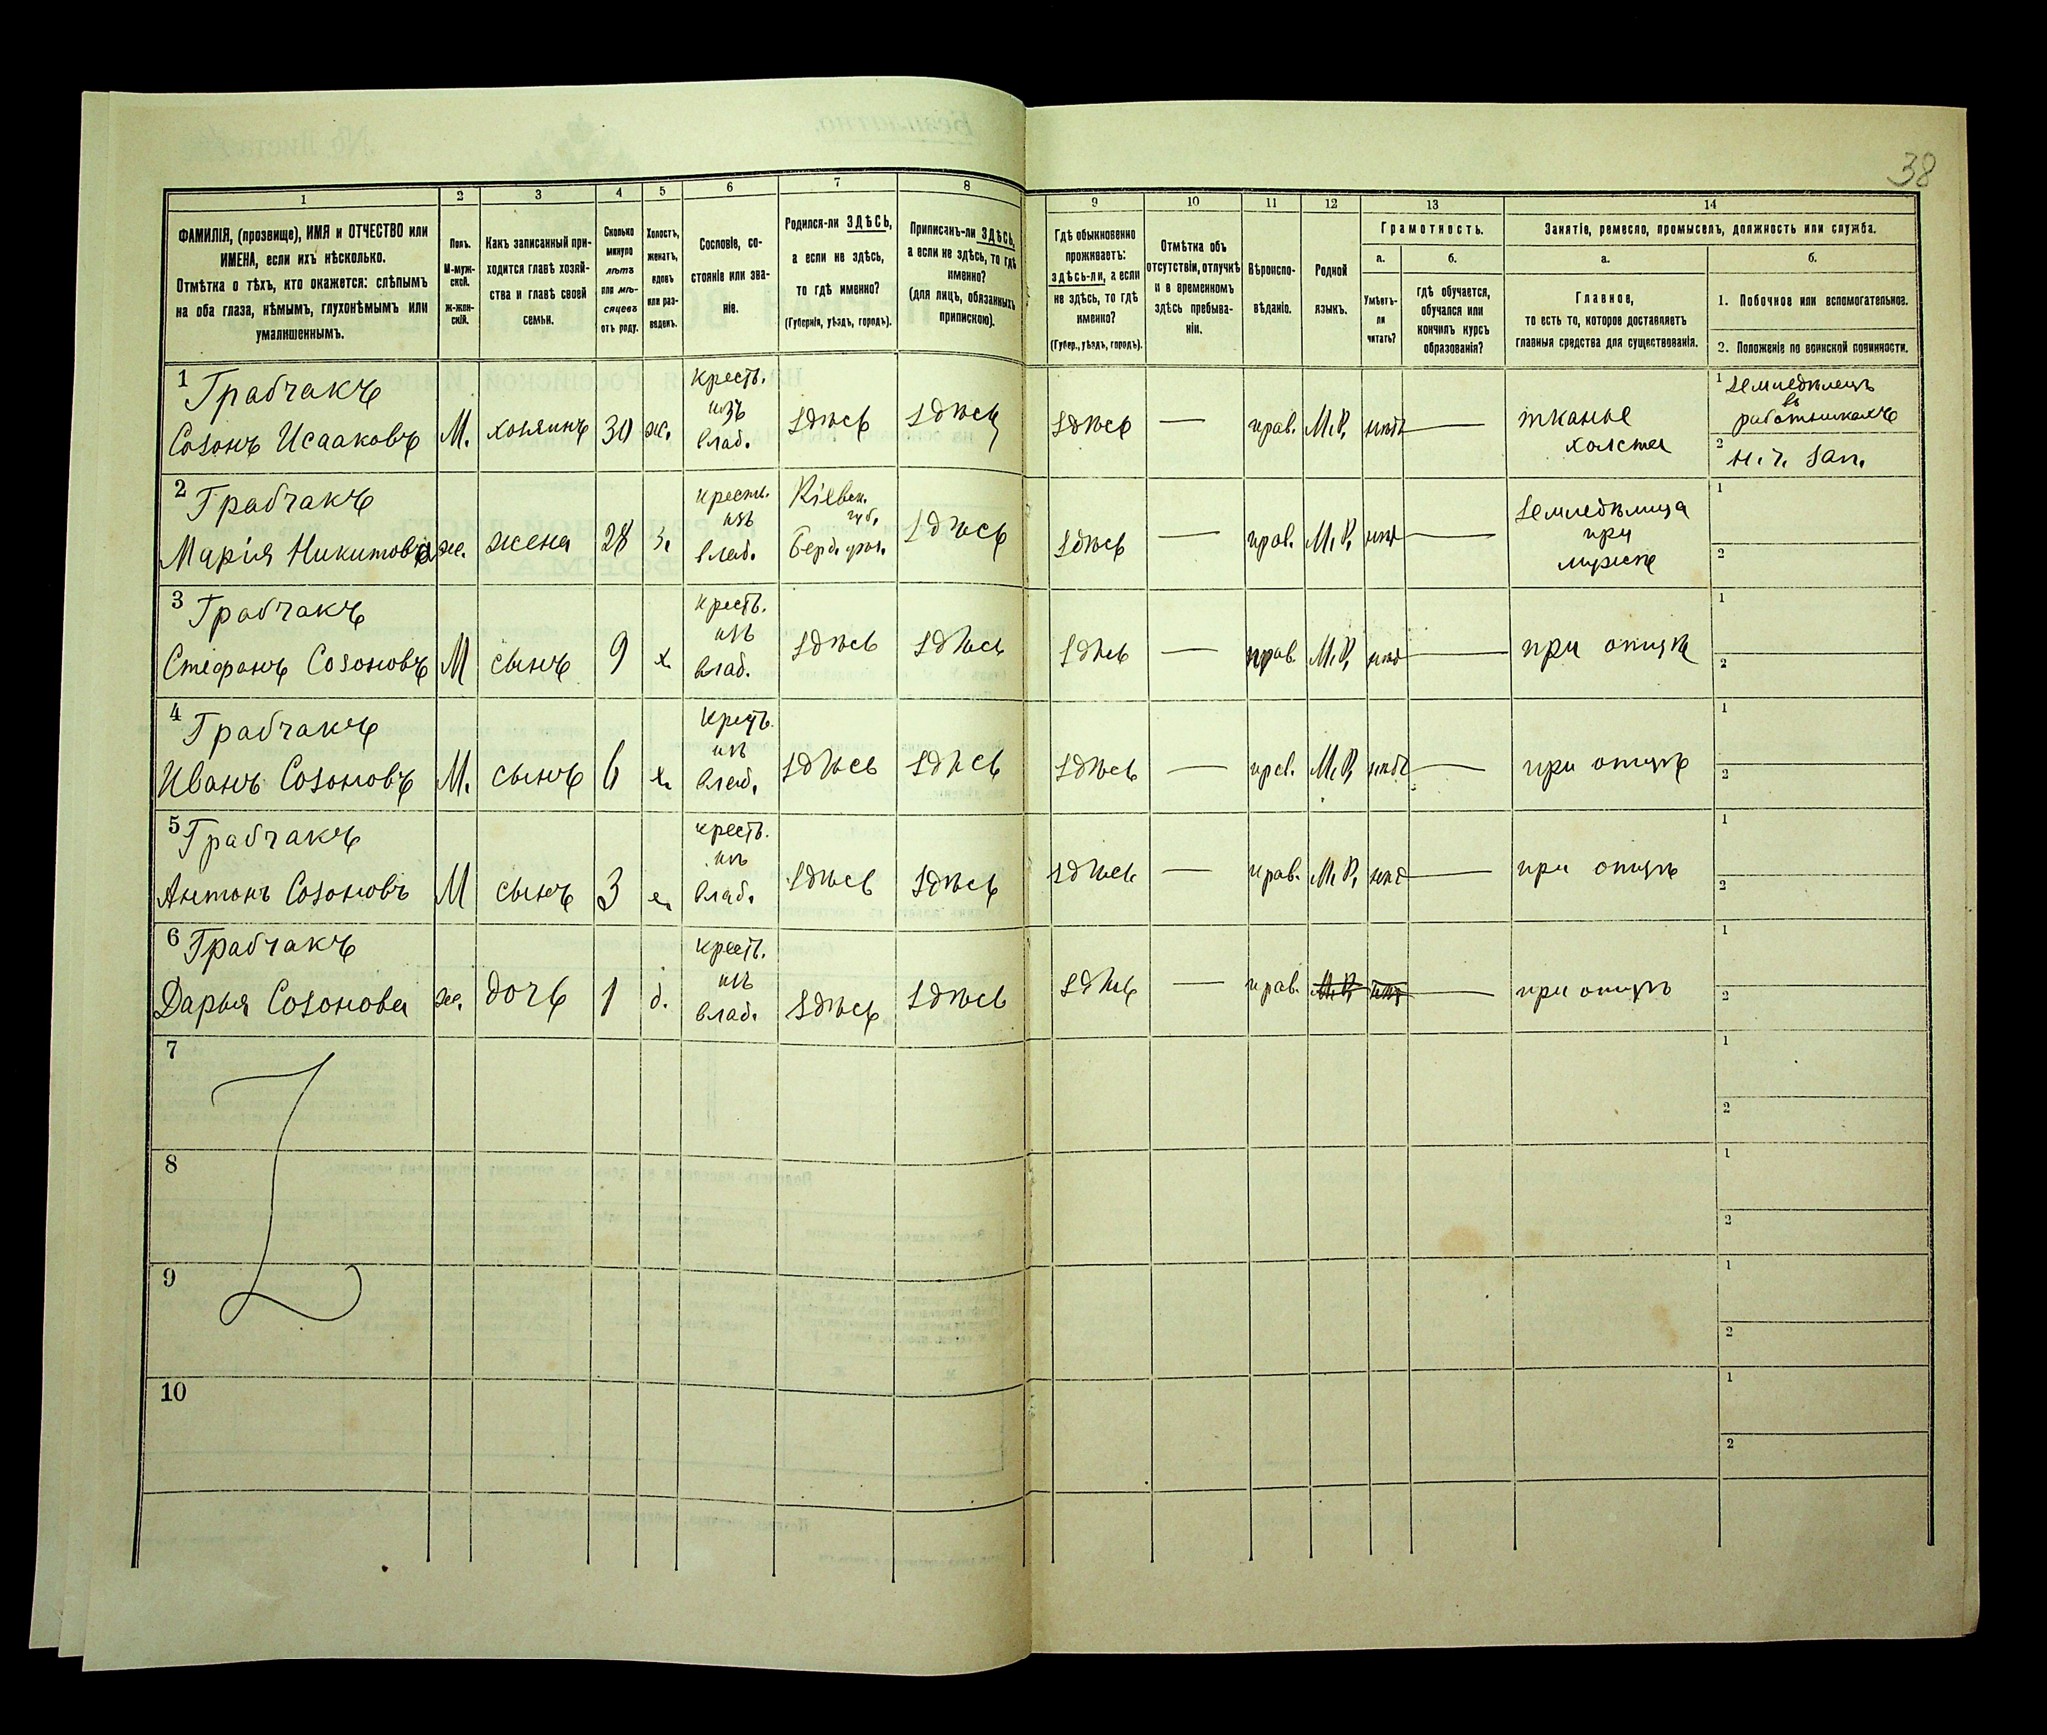 38
1
2
3
4
5
6
7
8
9
10
11
12
13
14
ФАМИЛІЯ, (прозвище), ИМЯ и ОТЧЕСТВО или
ИМЕНА, если ихъ нѣсколько.
Отмѣтка о тѣхъ, кто окажется: слѣпымъ
на оба глаза, нѣмымъ, глухонѣмымъ или
умалишеннымъ.
Полъ.
М-муж-
ской.
ж-жен-
скій.
Какъ записанный при-
ходится главѣ хозяй-
ства и главѣ своей
семьи.
Сколько
минуло
лѣтъ
или мѣ-
сяцевъ
отъ роду.
Холостъ,
женатъ,
вдовъ
или раз-
веденъ.
Сословіе, со-
стояніе или зва-
ніе.
Родился-ли ЗДѢСЬ,
а если не здѣсь,
то гдѣ именно?
(Губернія, уѣздъ, городъ).
Приписанъ-ли ЗДѢСЬ,
а если не здѣсь, то гдѣ
именно?
(для лицъ, обязанныхъ
припискою).
Гдѣ обыкновенно
проживаетъ:
ЗДѢСЬ-ЛИ, а если
не здѣсь, то гдѣ
именно?
(Губер., уѣздъ, городъ).
Отмѣтка объ
отсутствіи, отлучкѣ
и о временномъ
здѣсь пребыва-
ніи.
Вѣроиспо-
вѣданіе.
Родной
языкъ.
Грамотность.
а.
б.
Умѣетъ-
ли
читать?
гдѣ обучается,
обучался или
кончилъ курсъ
образованія?
Занятіе, ремесло, промыселъ, должность или служба.
а.
б.
Главное,
то есть то, которое доставляетъ
главныя средства для существованія.
1. Побочное или вспомогательное.
2. Положеніе по воинской повинности.
1 Грабчакъ
Созонъ Исааковъ М. хозяинъ 30 ж.
Крест.
изъ
влад.
здѣсь здѣсь здѣсь — прав. М. Р. нѣтъ —
тканье
холста
1 земледѣлецъ
въ
работникахъ
2 н. ч. зап.
2 Грабчакъ
Марія Никитова ж. жена 28 з.
крест.
изъ
влад.
Кіевск.
губ.
Берд. уѣз.
здѣсь здѣсь — прав. М. Р. нѣтъ —
земледѣлица
при
мужѣ
1
2
3 Грабчакъ
Стефанъ Созоновъ М сынъ 9 х.
крест.
изъ
влад.
здѣсь здѣсь здѣсь — прав. М. Р. нѣтъ — при отцѣ
1
2
4 Грабчакъ
Иванъ Созоновъ М. сынъ 6 х.
крест.
изъ
влад.
здѣсь здѣсь здѣсь — прав. М. Р. нѣтъ — при отцѣ
1
2
5 Грабчакъ
Антонъ Созоновъ М сынъ 3 х.
крест.
изъ
влад.
здѣсь здѣсь здѣсь — прав. М. Р. нѣтъ — при отцѣ
1
2
6 Грабчакъ
Дарья Созонова ж. дочь 1 д.
крест.
изъ
влад.
здѣсь здѣсь здѣсь — прав. М. Р. нѣтъ — при отцѣ
1
2
7
1
2
8
1
2
9
1
2
10
1
2